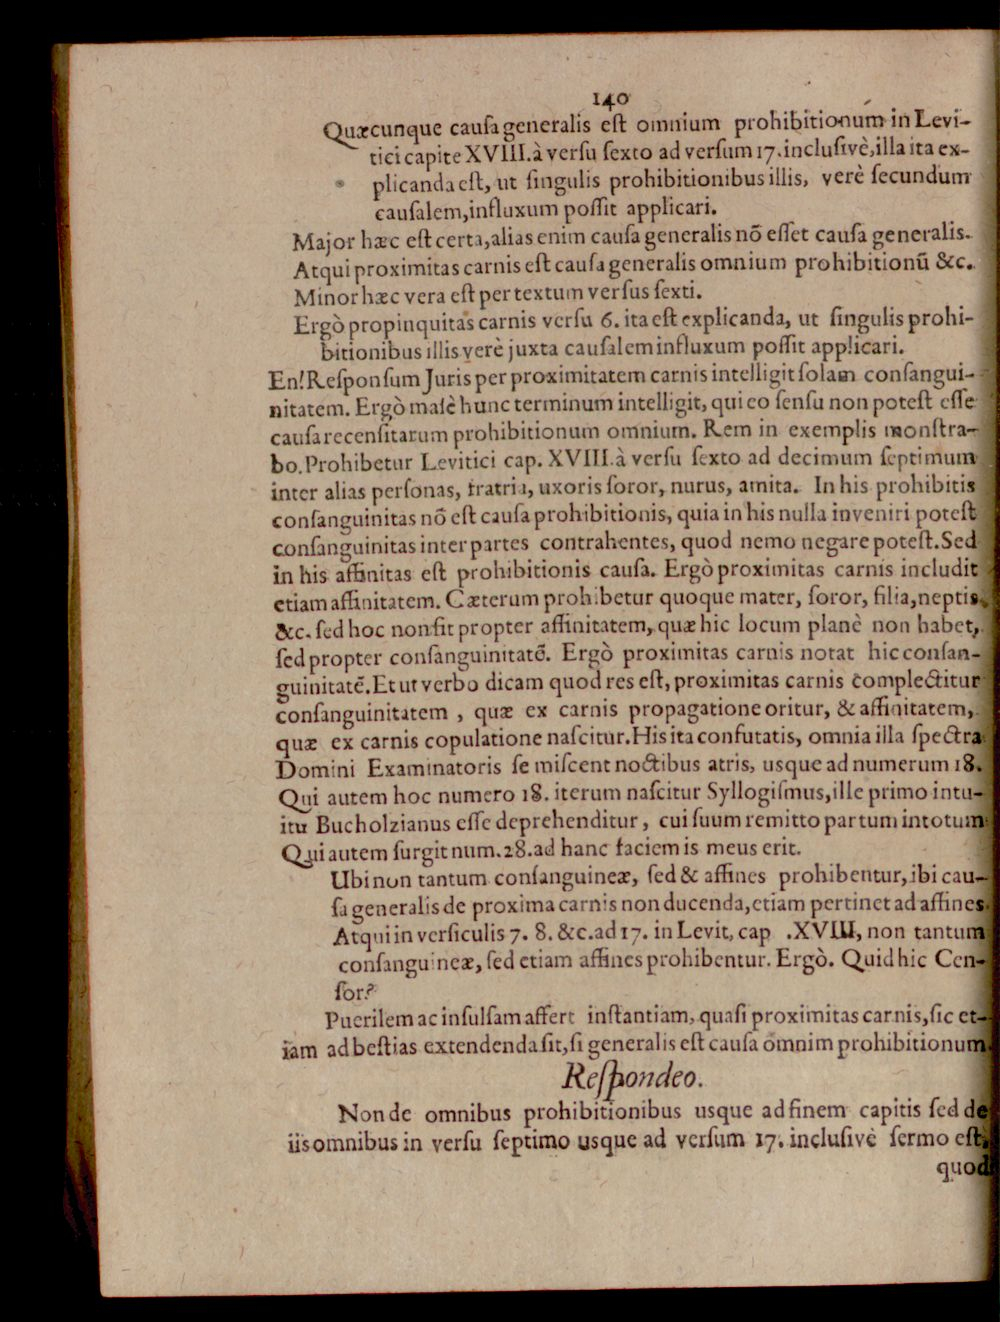 140
Quæcunque cauſa generalis eſt omnium prohibitionum in Levi-
tici capite XVIII. à verſu ſexto ad verſum 17. incluſivè, illa ita ex-
plicanda eſt, ut ſingulis prohibitionibus illis, verè ſecundum
cauſalem, influxum poſſit applicari.
Major hæc eſt certa, alias enim cauſa generalis nõ eſſet cauſa generalis.
Atqui proximitas carnis eſt cauſa generalis omnium prohibitionũ &c.
Minor hæc vera eſt per textum verſus ſexti.
Ergò propinquitas carnis verſu 6. ita eſt explicanda, ut ſingulis prohi-
bitionibus illis verè juxta cauſalem influxum poſſit applicari.
En! Reſponſum Juris per proximitatem carnis intelligit ſolam conſangui-
nitatem. Ergò malè hunc terminum intelligit, qui eo ſenſu non poteſt eſſe
cauſa recenſitarum prohibitionum omnium. Rem in exemplis monſtra-
bo. Prohibetur Levitici cap. XVIII. à verſu ſexto ad decimum ſeptimum
inter alias perſonas, fratria, uxoris ſoror, nurus, amita. In his prohibitis
conſanguinitas nõ eſt cauſa prohibitionis, quia in his nulla inveniri poteſt
conſanguinitas inter partes contrahentes, quod nemo negare poteſt. Sed
in his affinitas eſt prohibitionis cauſa. Ergò proximitas carnis includit
etiam affinitatem. Cæterum prohibetur quoque mater, ſoror, filia, neptis,
&c. ſed hoc non fit propter affinitatem, quæ hic locum planè non habet,
ſed propter conſanguinitatẽ. Ergò proximitas carnis notat hic conſan-
guinitatẽ. Et ut verbo dicam quod res eſt, proximitas carnis complectitur
conſanguinitatem, quæ ex carnis propagatione oritur, & affinitatem,
quæ ex carnis copulatione naſcitur. His ita confutatis, omnia illa ſpectra
Domini Examinatoris ſe miſcent noctibus atris, usque ad numerum 18.
Qui autem hoc numero 18. iterum naſcitur Syllogiſmus, ille primo intu-
itu Bucholzianus eſſe deprehenditur, cui ſuum remitto partum in totum.
Qui autem ſurgit num. 28. ad hanc faciem is meus erit.
Ubi non tantum conſanguineæ, ſed & affines prohibentur, ibi cau-
ſa generalis de proxima carnis non ducenda, etiam pertinet ad affines.
Atqui in verſiculis 7. 8. &c. ad 17. in Levit, cap .XVIII, non tantum
conſanguineæ, ſed etiam affines prohibentur. Ergò. Quid hic Cen-
ſor?
Puerilem ac inſulſam affert inſtantiam, quaſi proximitas carnis, ſic et-
iam ad beſtias extendenda ſit, ſi generalis eſt cauſa omnim prohibitionum.
Reſpondeo.
Non de omnibus prohibitionibus usque ad finem capitis ſed de
iis omnibus in verſu ſeptimo usque ad verſum 17. incluſivè ſermo eſt,
quod